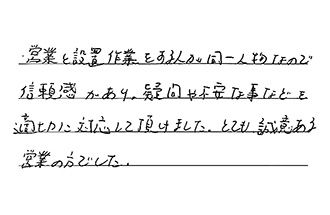 ・営業と設置作業をする人が同一人物なので
信頼感があり、疑問や不安な事などを
適切に対応して頂けました。とても誠意ある
営業の方でした。